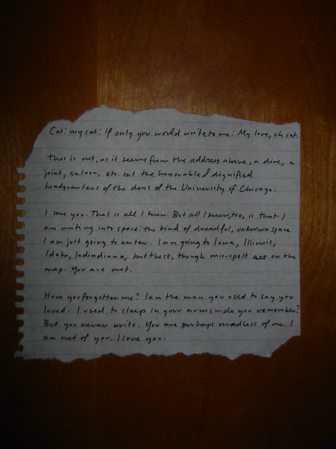 Cat: my cat: If only you would write to me: My love, oh cat.
This is not, as it seems from the address above, a dive, a
joint, saloon, etc. but the honourable & dignified
headquarters of the dons of the University of Chicago.
I love you. That is all I know. But all I know, too, is that I
am writing into space: the kind of dreadful, unknown space
I am just going to enter. I am going to Iowa, Illinois,
Idaho, Indindiana, but these, though misspelt are on the
map. You are not.
Have you forgotten me? I am the man you used to say you
loved. I used to sleep in your arms - do you remember?
But you never write. You are perhaps mindless of me. I
am not of you. I love you.